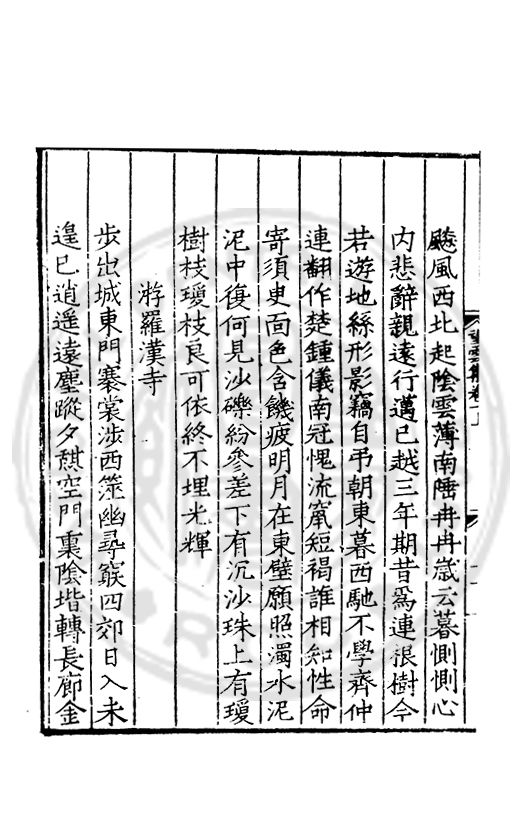 飈風西北起陰雲薄南陲冉冉歲云暮惻惻心
内悲辭親遠行邁已越三年期昔爲連根樹今
若遊地絲形影竊自弔朝東暮西馳不學齊仲
連翻作楚鍾儀南冠愧流竄短褐誰相知性命
寄須臾面色含饑疲明月在東壁願照濁水泥
泥中復何見沙礫紛參差下有沉沙珠上有瓊
樹枝瓊枝良可依終不埋光輝
游羅漢寺
步出城東門褰裳涉西滋幽尋窮四郊日入未
遑已逍遥遠塵蹤夕憇空門裏陰堦轉長廊金